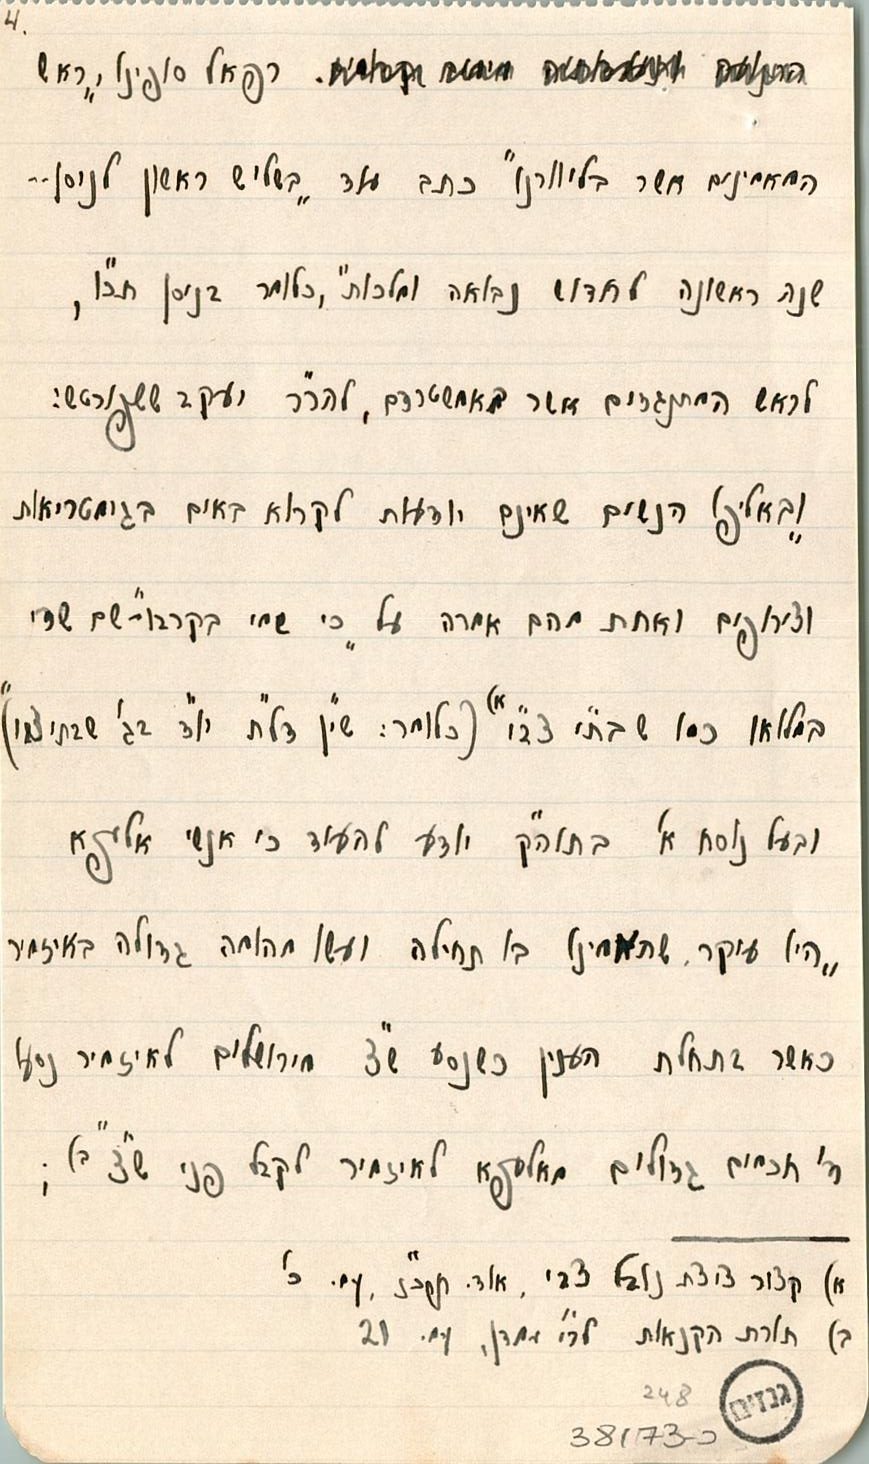 4.
רפאל סופינו, „ראש
המאמינים אשר בליוורנו" כתב עוד „בשליש ראשון לניסן..
שנה ראשונה לחדוש נבואה ומלכות", כלומר בניסן תכ"ו,
לראש המתנגדים אשר באמשטרדם, להר"ר יעקב ששפורטש:
„ובאליפו הנשים שאינם יודעות לקרוא באים בגימטריאות
וצירופים ואחת מהם אמרה על „כי שמי בקרבו" שם שדי
במלואו כמו שבת"י צב"י" א) (כלומר: שי"ן דל"ת יו"ד בג' שבתי צבי)"
ובעל נוסח א' בתוה"ק יודע להעיד כי אנשי אליפא
„היו עיקר, שהאמינו בו תחילה ועשו מהומה גדולה באיזמיר
כאשר בתחלת הענין כשנסע ש"צ מירושלים לאיזמיר נסעו
ד' חכמים גדולים מאליפא לאיזמיר לקבל פני ש"צ" ב);
א) קצור ציצת נובל צבי, אוד. תקכ"ז, עמ. כ'
ב) תורת הקנאות לר"י עמדן, עמ. 21
גנזים
248
38173-כ